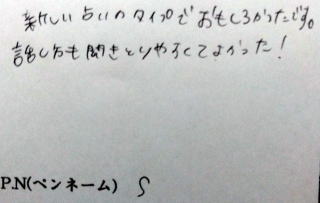 新しい占いのタイプでおもしろかったです。
話し方も聞きとりやすくてよかった!
P.N(ペンネーム) S